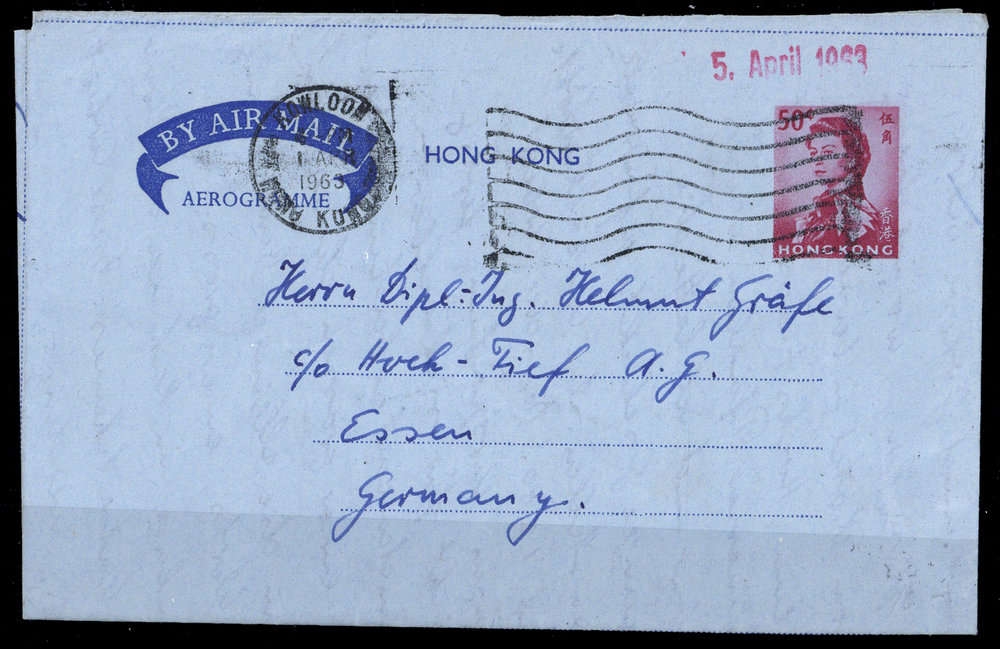 5. April 1963
BY AIR MAIL
AEROGRAMME
KOWLOON
1963
HONG KONG
HONG KONG
50¢
伍角
香港
HONG KONG
Herrn Dipl.-Ing. Helmut Gräfe
c/o Hoch-Tief A.G.
Essen
Germany.